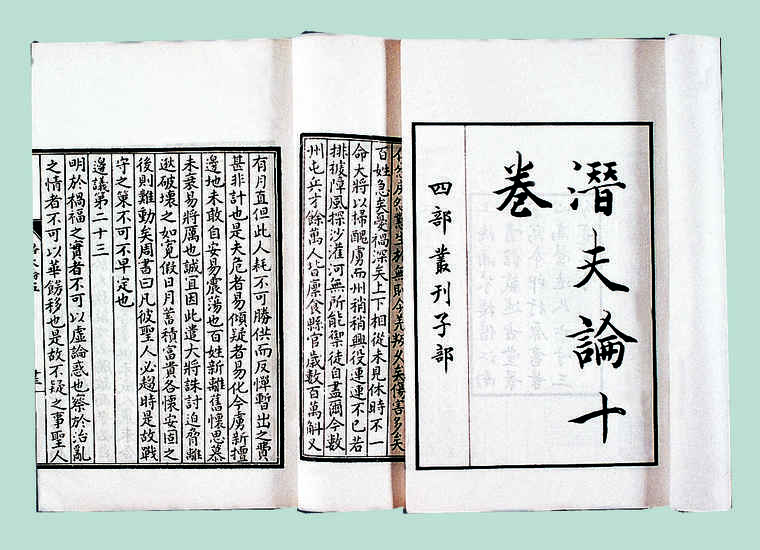 潛夫論十
卷
四部叢刊子部
矣傷害多矣
百姓急矣憂禍深矣上下相從未見休時不一
命大將以掃醜虜而州稍稍興役連連不已若
排㯋障風探沙灌河無所能禦徒自盡爾今數
州屯兵才餘萬人皆廩食縣官歲數百萬斛又
有月直但此人耗不可勝供而反憚暫出之費
甚非計也是夫危者易傾疑者易化今虜新擅
邊地未敢自安易震蕩也百姓新離舊懷思慕
未衰易將厲也誠宜因此遣大將誅討迫脅離
逖破壞之如寬假日月蓄積富貴各懷安固之
後則難動矣周書曰凡彼聖人必趨時是故戰
守之策不可不早定也
邊議第二十三
明於禍福之實者不可以虛論惑也察於治亂
之情者不可以華飾移也是故不疑之事聖人